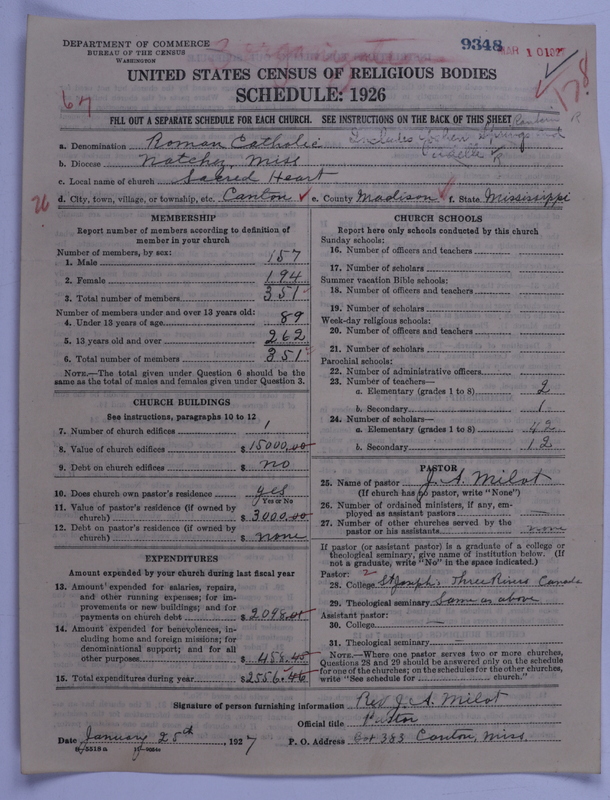 DEPARTMENT OF COMMERCE
BUREAU OF THE CENSUS
WASHINGTON
9348
MAR 10 1927
178
UNITED STATES CENSUS OF RELIGIOUS BODIES
SCHEDULE: 1926
67
FILL OUT A SEPARATE SCHEDULE FOR EACH CHURCH. SEE INSTRUCTIONS ON THE BACK OF THIS SHEET
a. Denomination Roman Catholic
Includes Springs and
b. Diocese Natchez, Miss
c. Local name of church Sacred Heart
26
d. City, town, village, or township, etc. Canton e. County Madison f. State Mississippi
MEMBERSHIP
Report number of members according to definition of
member in your church
Number of members, by sex:
1. Male 157
2. Female 194
3. Total number of members 351
Number of members under and over 13 years old:
4. Under 13 years of age 89
5. 13 years old and over 262
6. Total number of members 351
NOTE.—The total given under Question 6 should be the
same as the total of males and females given under Question 3.
CHURCH BUILDINGS
See instructions, paragraphs 10 to 12
7. Number of church edifices 1
8. Value of church edifices $15000.00
9. Debt on church edifices $ no
10. Does church own pastor's residence yes
Yes or No
11. Value of pastor's residence (if owned by
church) $3000.00
12. Debt on pastor's residence (if owned by
church) $ none
EXPENDITURES
Amount expended by your church during last fiscal year
13. Amount expended for salaries, repairs,
and other running expenses; for im-
provements or new buildings; and for
payments on church debt $2098.01
14. Amount expended for benevolences, in-
cluding home and foreign missions; for
denominational support; and for all
other purposes $458.45
15. Total expenditures during year $2556.46
CHURCH SCHOOLS
Report here only schools conducted by this church
Sunday schools:
16. Number of officers and teachers
17. Number of scholars
Summer vacation Bible schools:
18. Number of officers and teachers
19. Number of scholars
Week-day religious schools:
20. Number of officers and teachers
21. Number of scholars
Parochial schools:
22. Number of administrative officers
23. Number of teachers—
a. Elementary (grades 1 to 8) 2
b. Secondary 1
24. Number of scholars—
a. Elementary (grades 1 to 8) 42
b. Secondary 12
PASTOR
25. Name of pastor J. A. Milot
(If church has no pastor, write "None")
26. Number of ordained ministers, if any, em-
ployed as assistant pastors —
27. Number of other churches served by the
pastor or his assistants none
If pastor (or assistant pastor) is a graduate of a college or
theological seminary, give name of institution below. (If
not a graduate, write "No" in the space indicated.)
Pastor: 2
28. College St Joseph, Three Rivers Canada
29. Theological seminary Same as above
Assistant pastor:
30. College —
31. Theological seminary —
NOTE.—Where one pastor serves two or more churches,
Questions 28 and 29 should be answered only on the schedule
for one of the churches; on the schedules for the other churches,
write "See schedule for church."
Signature of person furnishing information Rev J. A. Milot
Official title Pastor
Date January 25th, 1927 P. O. Address Box 383 Canton, Miss.
8-5518a